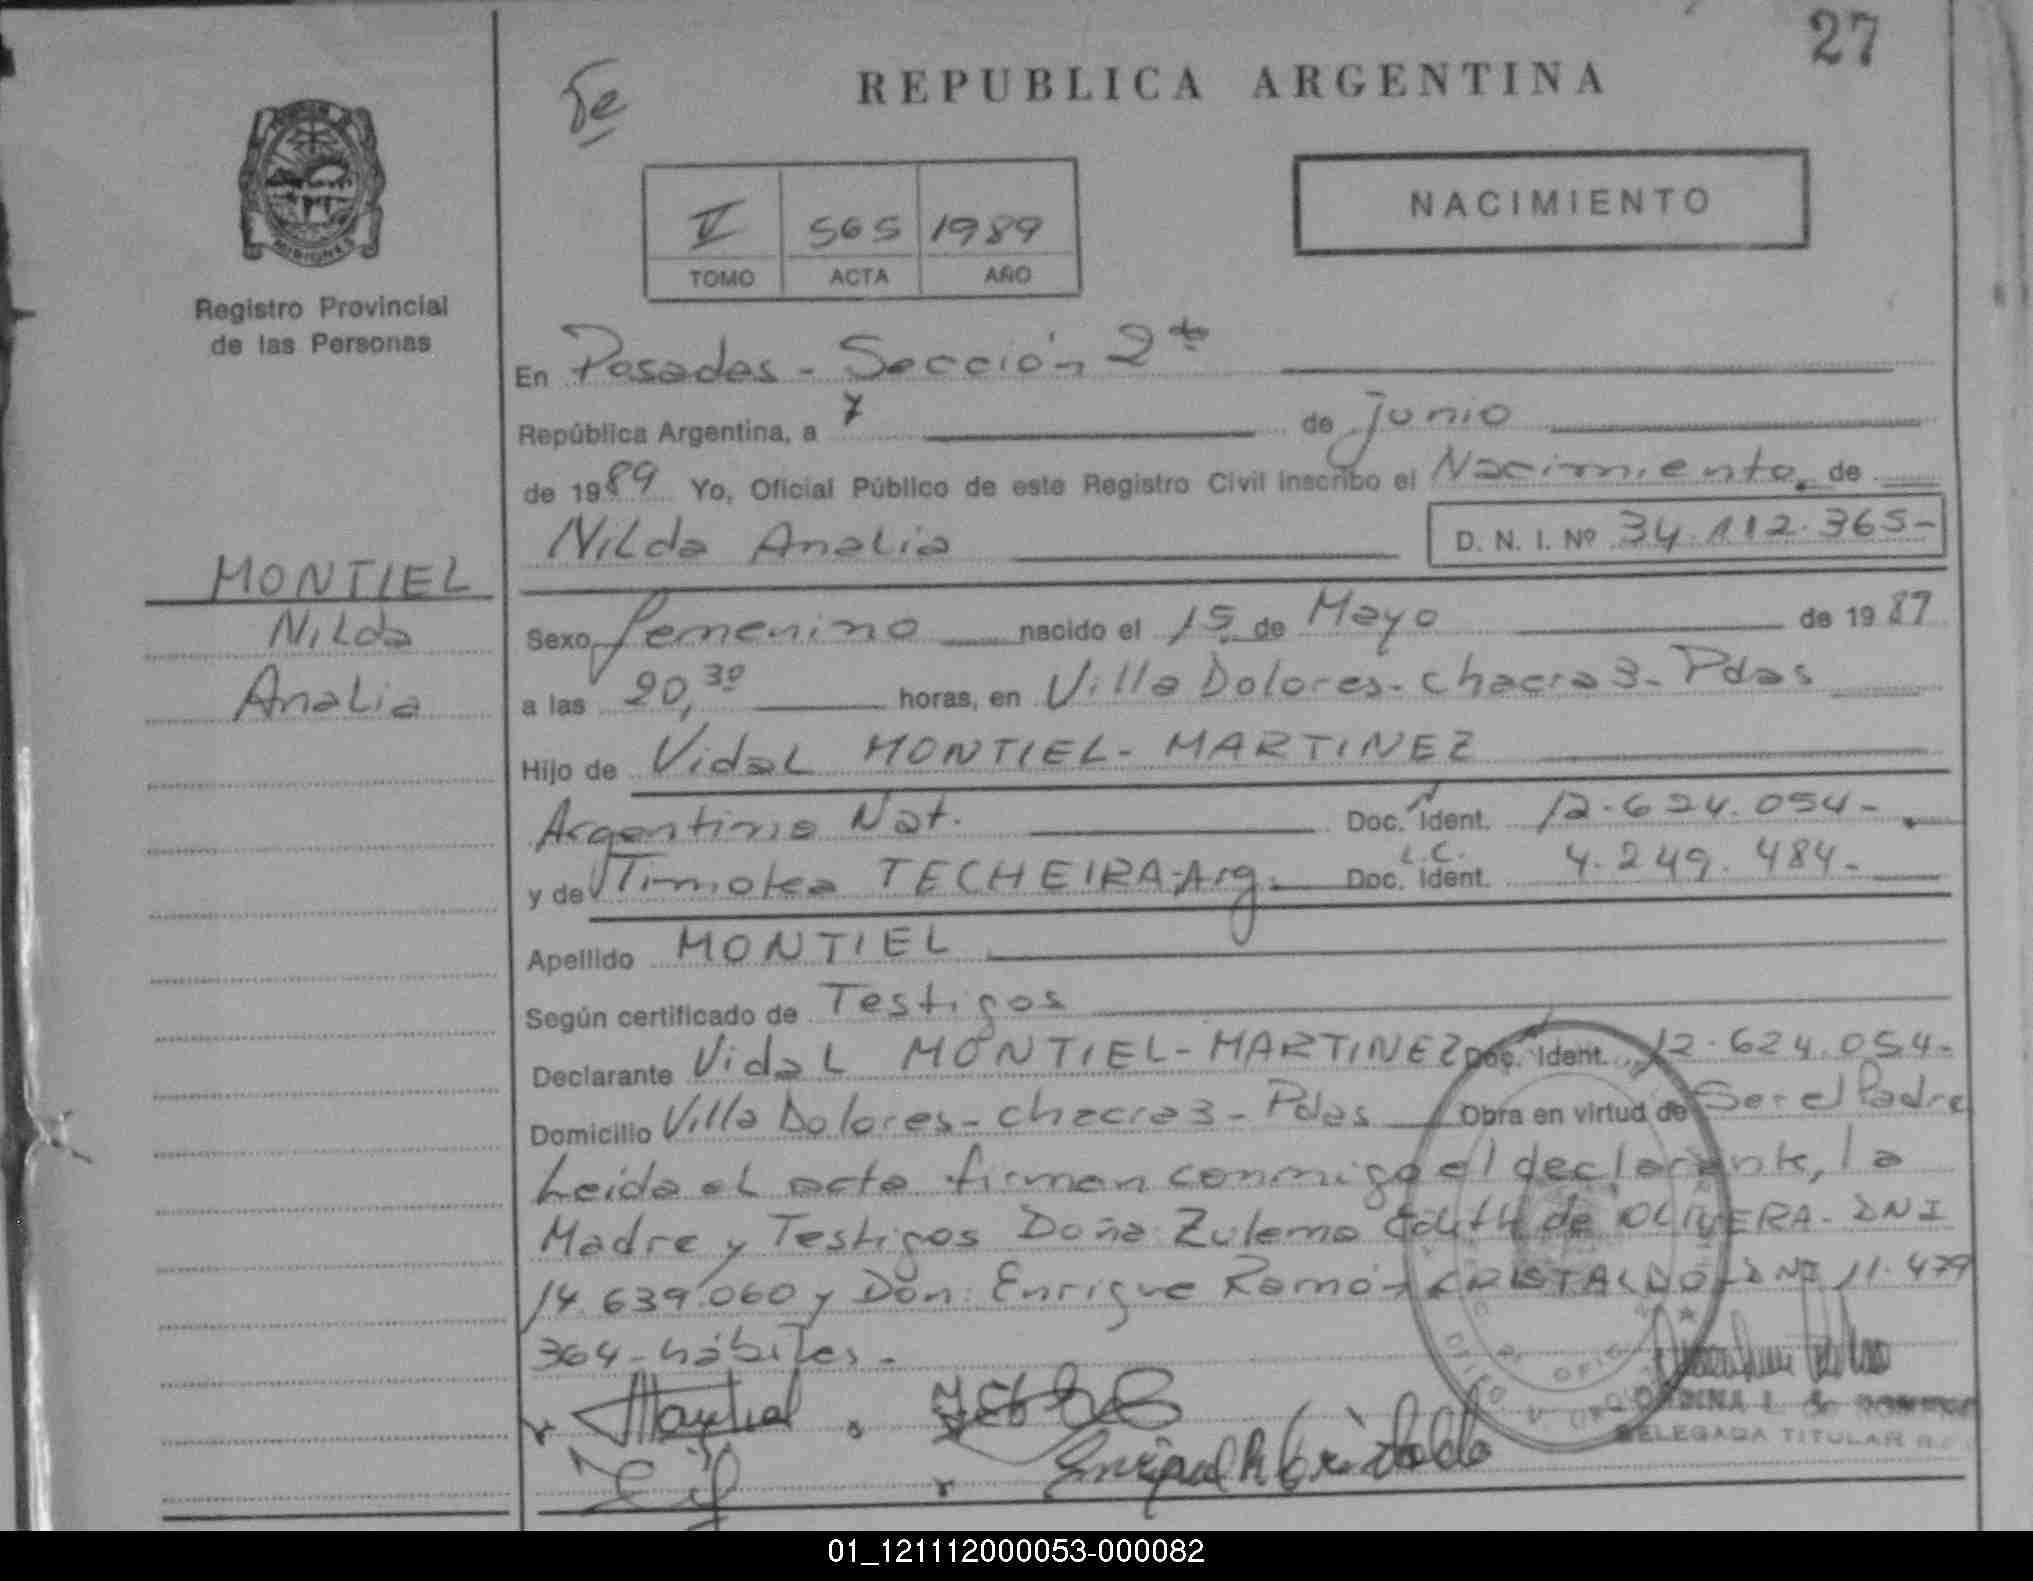 27
Fe
REPUBLICA ARGENTINA
NACIMIENTO
V 565 1989
TOMO ACTA AÑO
MISIONES
Registro Provincial
de las Personas
En Posadas - Sección 2da
República Argentina, a 7 de junio
de 1989 Yo, Oficial Público de este Registro Civil inscribo el Nacimiento de
Nilda Analia D. N. I. Nº 34.112.365-
MONTIEL
Nilda
Analia
Sexo femenino nacido el 15 de Mayo de 1987
a las 20,30 horas, en Villa Dolores - chacra 3 - Pdas
Hijo de Vidal MONTIEL - MARTINEZ
Argentino Nat. Doc. Ident. 12.624.054-
y de Timotea TECHEIRA - Arg. L.C. Doc. Ident. 4.249.484-
Apellido MONTIEL
Según certificado de Testigos
Declarante Vidal MONTIEL - MARTINEZ Doc. Ident. 12.624.054-
Domicilio Villa Dolores - chacra 3 - Pdas Obra en virtud de Ser el Padre
Leida el acta firman conmigo el declarante, la
Madre y Testigos Doña: Zulema Edith de OLIVERA - DNI
14.639.060 y Don: Enrique Ramón CRISTALDO - DNI 11.479
364 - hábiles -
Montiel
Enrique R Cristaldo
DELEGADA TITULAR
01_121112000053-000082